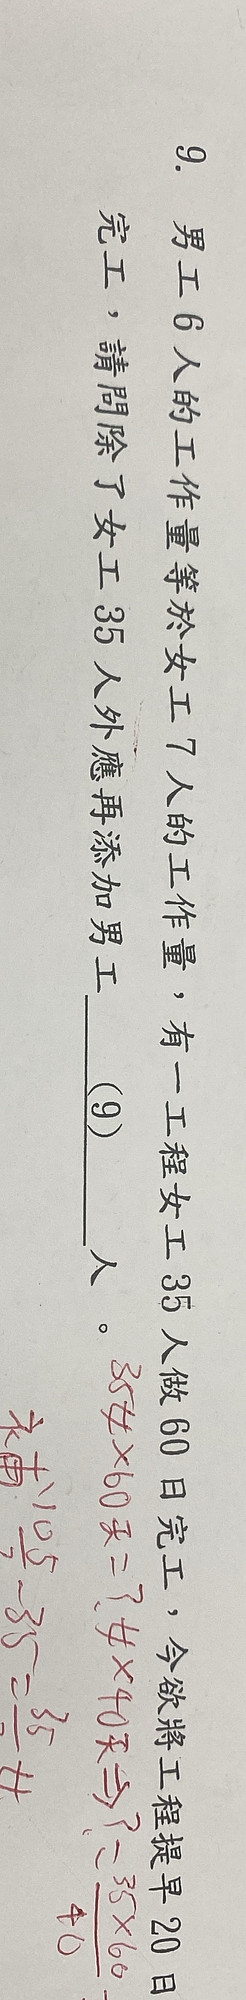 9. 男工6人的工作量等於女工7人的工作量，有一工程女工35人做60日完工，今欲將工程提早20日
完工，請問除了女工35人外應再添加男工 (9) 人。
35女×60天=?女×40天⇒?=35×60
40
105-35=35女